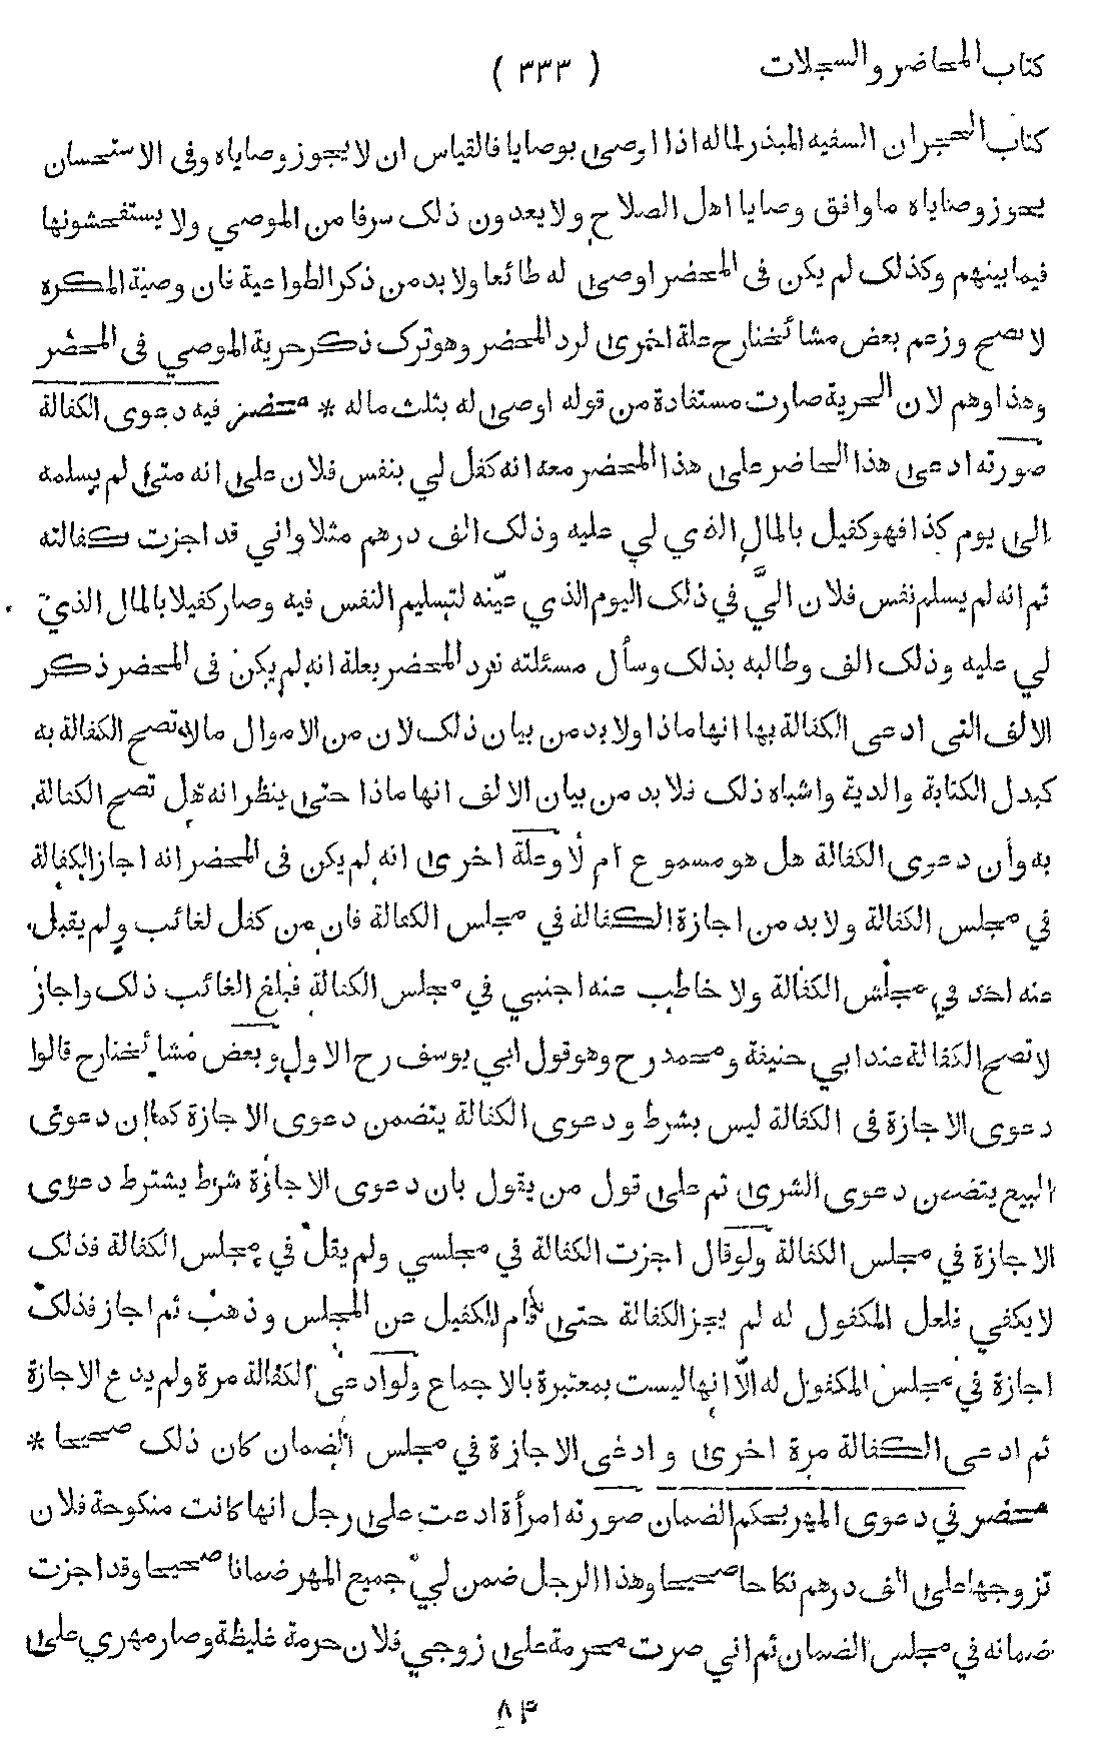 كتاب المحاضر والسجلات
( ٣٣٣ )
كتاب الحجر ان السفيه المبذر لماله اذا اوصى بوصايا فالقياس ان لا يجوز وصاياه وفى الاستحسان
يجوز وصاياه ما وافق وصايا اهل الصلاح ولا يعدون ذلك سرفا من الموصي ولا يستفحشونها
فيما بينهم وكذلك لم يكن فى المحضر اوصى له طائعا ولا بد من ذكر الطواعية فان وصية المكره
لا تصح وزعم بعض مشائخنا رح علة اخرى لرد المحضر وهو ترك ذكر حرية الموصي فى المحضر
وهذا وهم لان الحرية صارت مستفادة من قوله اوصى له بثلث ماله * محضر فيه دعوى الكفالة
صورته ادعى هذا الحاضر على هذا المحضر معه انه كفل لي بنفس فلان على انه متى لم يسلمه
الى يوم كذا فهو كفيل بالمال الذي لي عليه وذلك الف درهم مثلا واني قد اجزت كفالته
ثم انه لم يسلم نفس فلان اليَّ في ذلك اليوم الذي عيّنه لتسليم النفس فيه وصار كفيلا بالمال الذي
لي عليه وذلك الف وطالبه بذلك وسأل مسئلته فرد المحضر بعلة انه لم يكن فى المحضر ذكر
الالف التى ادعى الكفالة بها انها ماذا ولا بد من بيان ذلك لان من الاموال ما لا تصح الكفالة به
كبدل الكتابة والدية واشباه ذلك فلا بد من بيان الالف انها ماذا حتى ينظر انه هل تصح الكفالة
به وأن دعوى الكفالة هل هو مسموع أم لا وعلة اخرى انه لم يكن فى المحضر انه اجاز الكفالة
في مجلس الكفالة ولا بد من اجازة الكفالة في مجلس الكفالة فان من كفل لغائب ولم يقبل
عنه احد في مجلس الكفالة ولا خاطب عنه اجنبي في مجلس الكفالة فبلغ الغائب ذلك واجاز
لا تصح الكفالة عند ابي حنيفة ومحمد رح وهو قول ابي يوسف رح الاول وبعض مشائخنا رح قالوا
دعوى الاجازة فى الكفالة ليس بشرط ودعوى الكفالة يتضمن دعوى الاجازة كما ان دعوى
البيع يتضمن دعوى الشرى ثم على قول من يقول بان دعوى الاجازة شرط يشترط دعوى
الاجازة في مجلس الكفالة ولو قال اجزت الكفالة في مجلسي ولم يقل في مجلس الكفالة فذلك
لا يكفي فلعل المكفول له لم يجز الكفالة حتى قام الكفيل عن المجلس وذهب ثم اجاز فذلك
اجازة في مجلس المكفول له الّا انها ليست بمعتبرة بالاجماع ولو ادعى الكفالة مرة ولم يدع الاجازة
ثم ادعى الكفالة مرة اخرى وادعى الاجازة في مجلس الضمان كان ذلك صحيحا *
محضر في دعوى المهر بحكم الضمان صورته امرأة ادعت على رجل انها كانت منكوحة فلان
تزوجها على الف درهم نكاحا صحيحا وهذا الرجل ضمن لي جميع المهر ضمانا صحيحا وقد اجزت
ضمانه في مجلس الضمان ثم اني صرت محرمة على زوجي فلان حرمة غليظة وصار مهري على
٨٤